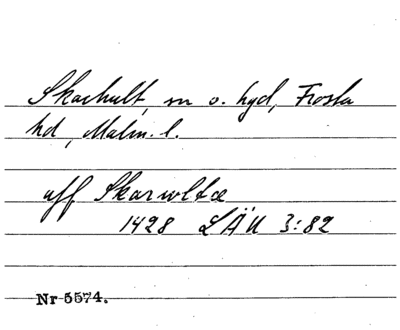 Skarhult, sn o. by, Frosta
hd, Malm. l.
aff Skarwltæ
1428 LÄU 3:82
Nr 5574.